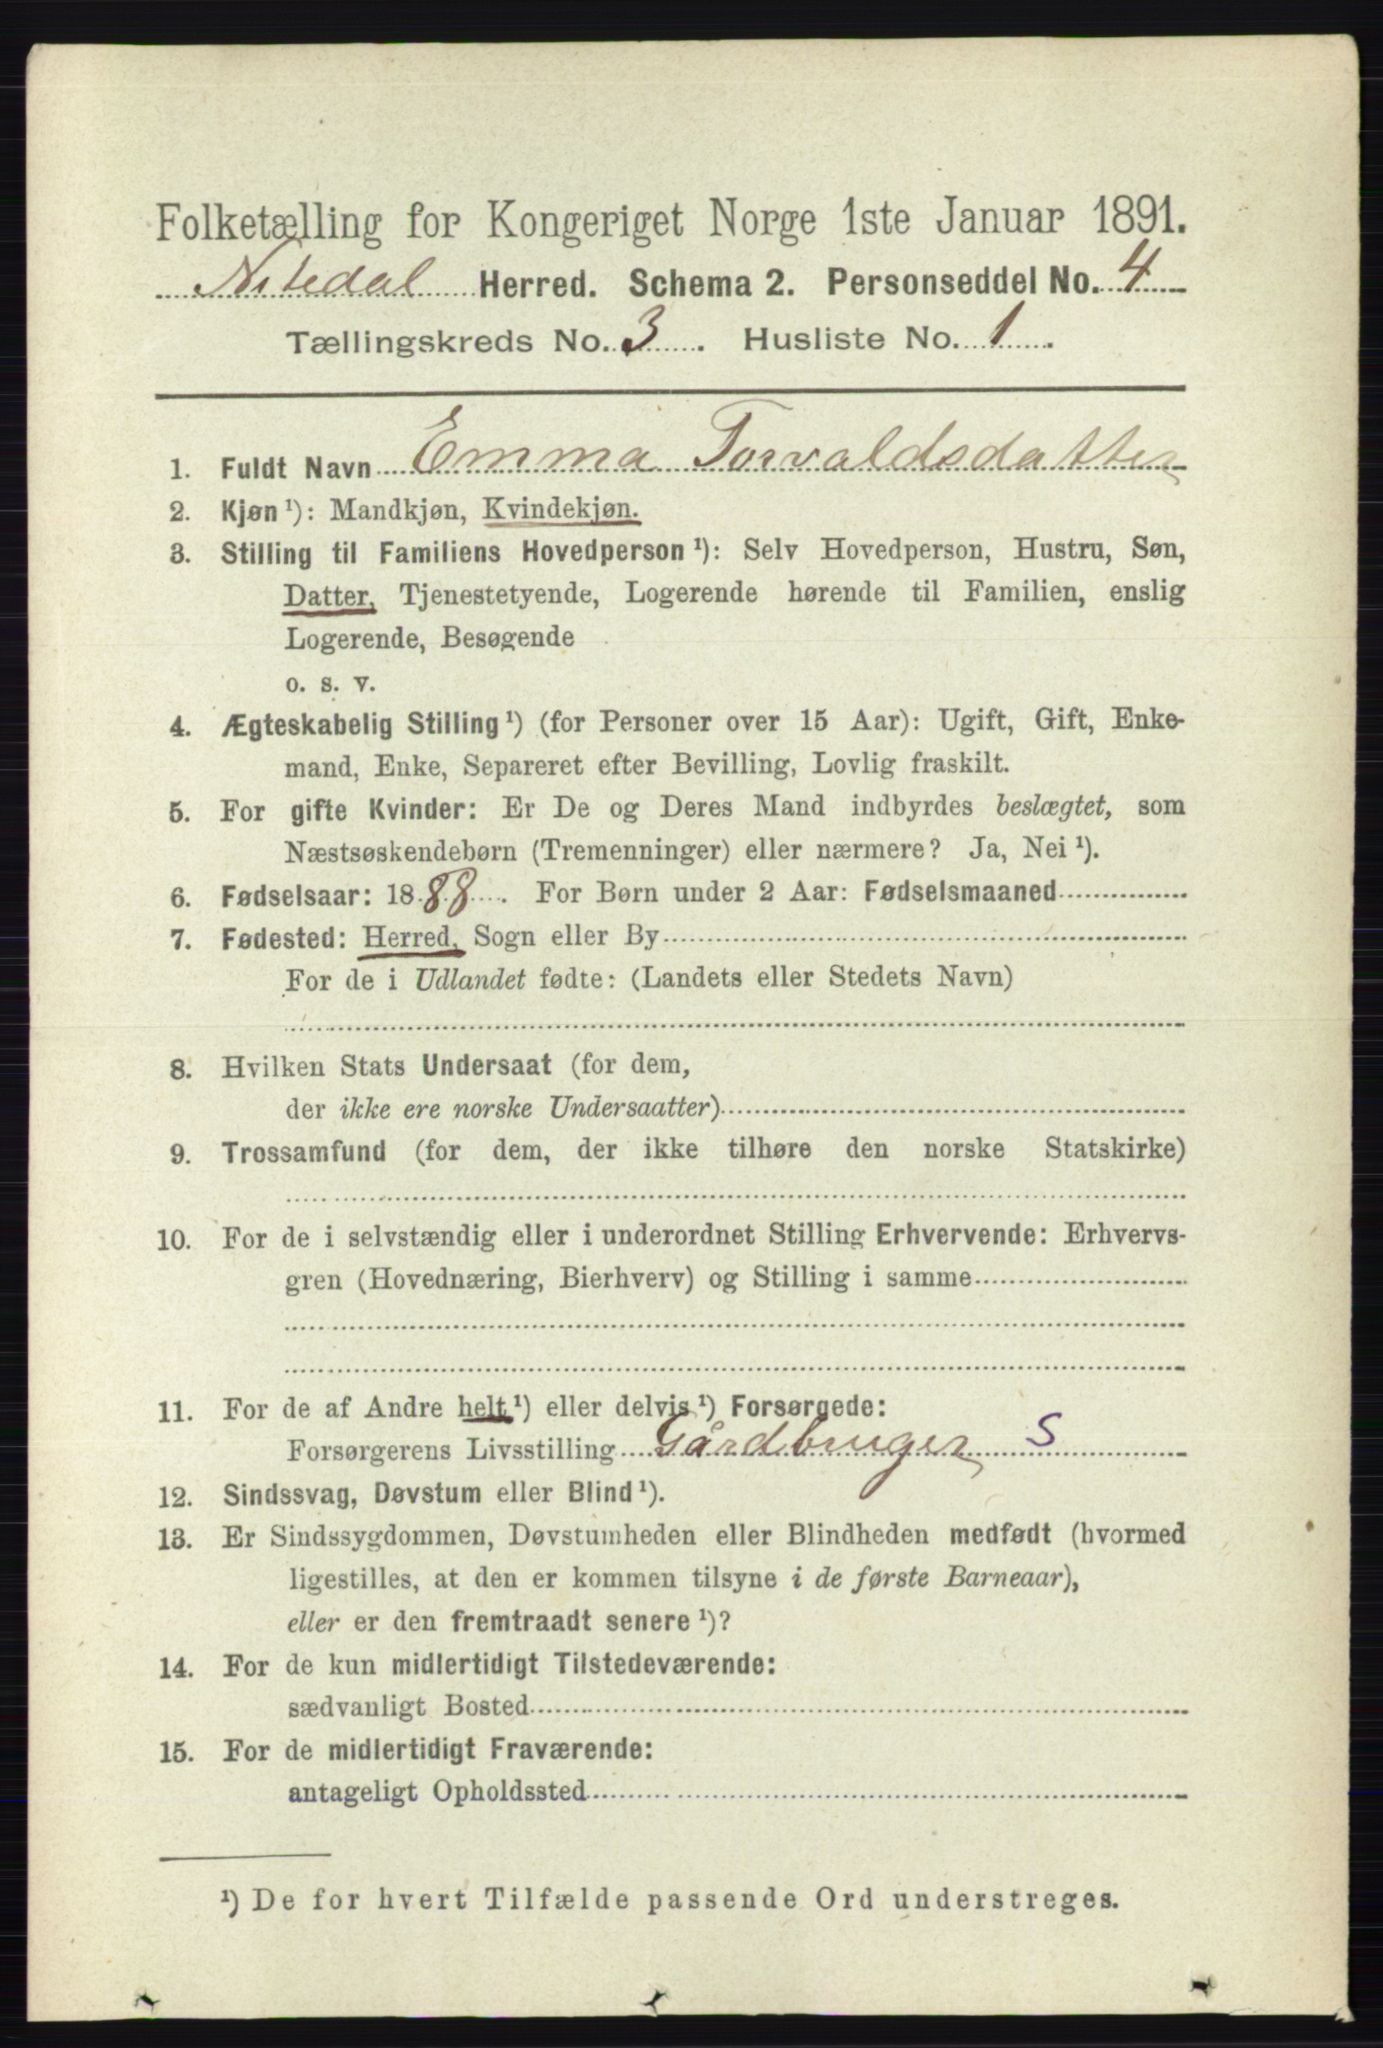 Folketælling for Kongeriget Norge 1ste Januar 1891.
Nitedal Herred. Schema 2. Personseddel No. 4
Tællingskreds No. 3. Husliste No. 1.
1. Fuldt Navn Emma Torvaldsdatter
2. Kjøn¹): Mandkjøn, Kvindekjøn.
3. Stilling til Familiens Hovedperson¹): Selv Hovedperson, Hustru, Søn,
Datter, Tjenestetyende, Logerende hørende til Familien, enslig
Logerende, Besøgende
o. s. v.
4. Ægteskabelig Stilling¹) (for Personer over 15 Aar): Ugift, Gift, Enke-
mand, Enke, Separeret efter Bevilling, Lovlig fraskilt.
5. For gifte Kvinder: Er De og Deres Mand indbyrdes beslægtet, som
Næstsøskendebørn (Tremenninger) eller nærmere? Ja, Nei¹).
6. Fødselsaar: 1888. For Børn under 2 Aar: Fødselsmaaned
7. Fødested: Herred, Sogn eller By
For de i Udlandet fødte: (Landets eller Stedets Navn)
8. Hvilken Stats Undersaat (for dem,
der ikke ere norske Undersaatter)
9. Trossamfund (for dem, der ikke tilhøre den norske Statskirke)
10. For de i selvstændig eller i underordnet Stilling Erhvervende: Erhvervs-
gren (Hovednæring, Bierhverv) og Stilling i samme
11. For de af Andre helt¹) eller delvis¹) Forsørgede:
Forsørgerens Livsstilling Gårdbruger S
12. Sindssvag, Døvstum eller Blind¹).
13. Er Sindssygdommen, Døvstumheden eller Blindheden medfødt (hvormed
ligestilles, at den er kommen tilsyne i de første Barneaar),
eller er den fremtraadt senere¹)?
14. For de kun midlertidigt Tilstedeværende:
sædvanligt Bosted
15. For de midlertidigt Fraværende:
antageligt Opholdssted
¹) De for hvert Tilfælde passende Ord understreges.